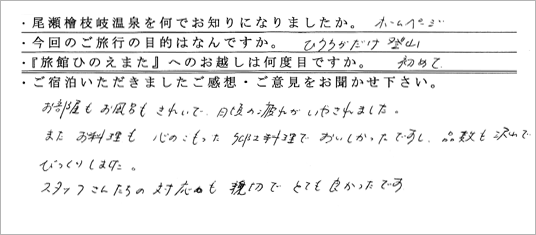 ・尾瀬檜枝岐温泉を何でお知りになりましたか。 ホームページ
・今回のご旅行の目的はなんですか。 ひうちがだけ 登山
・『旅館ひのえまた』へのお越しは何度目ですか。 初めて
・ご宿泊いただきましたご感想・ご意見をお聞かせ下さい。
お部屋もお風呂もきれいで、日頃の疲れがいやされました。
またお料理も心のこもった 料理でおいしかったですし、品数も沢山で
びっくりしました。
スタッフさんたちの対応も親切でとても良かったです